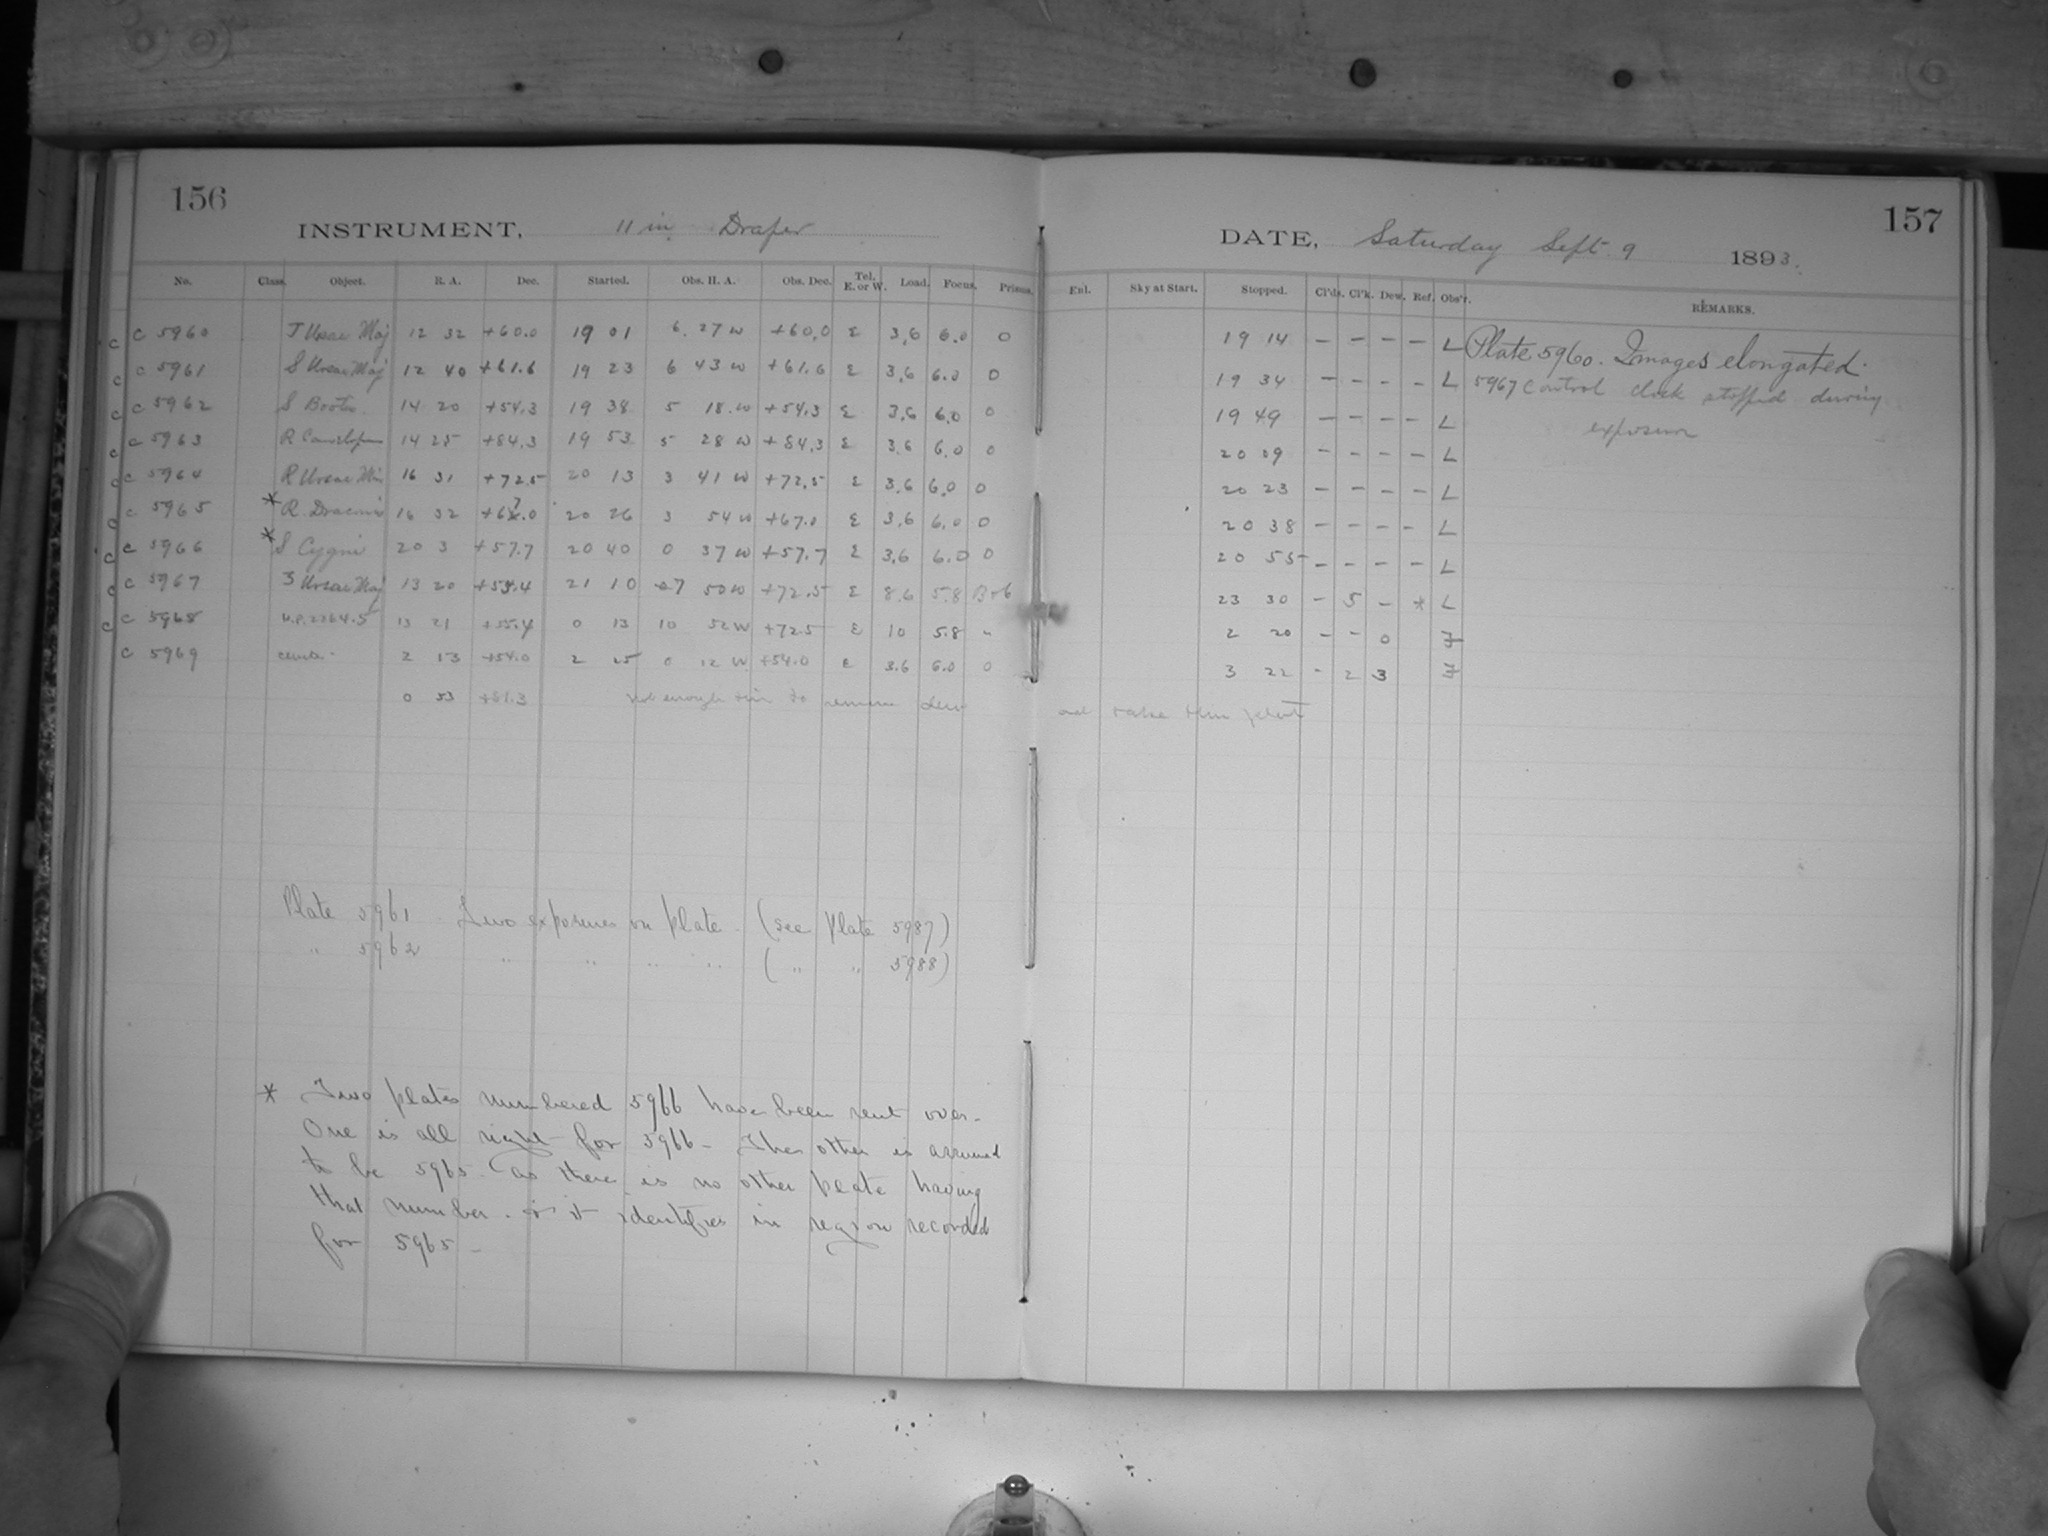 156
INSTRUMENT, 11 in Draper
No. Class. Object. R. A. Dec. Started. Obs. H. A. Obs. Dec. Tel. E. or W. Load. Focus. Prisms.
c C 5960 T Ursae Maj 12 32 +60.0 19 01 6. 27 W +60.0 E 3.6 6.0 0
c c 5961 S Ursae Maj 12 40 +61.6 19 23 6 43 W +61.6 E 3.6 6.0 0
c c 5962 S Bootis 14 20 +54.3 19 38 5 18 W +54.3 E 3.6 6.0 0
c c 5963 R Camelop 14 25 +84.3 19 53 5 28 W +84.3 E 3.6 6.0 0
c c 5964 R Ursae Min 16 31 +72.5 20 13 3 41 W +72.5 E 3.6 6.0 0
c c 5965 * R Draconis 16 32 +67.0 20 26 3 54 W +67.0 E 3.6 6.0 0
c c 5966 * S Cygni 20 3 +57.7 20 40 0 37 W +57.7 E 3.6 6.0 0
c c 5967 ζ Ursae Maj 13 20 +55.4 21 10 7 50 W +72.5 E 8.6 5.8 B+b
c c 5968 13 21 +55.4 0 13 10 52 W +72.5 E 10 5.8 "
c 5969 2 13 +54.0 2 25 0 12 W +54.0 E 3.6 6.0 0
0 53 +81.3 not enough time to remove dew and take this plate
Plate 5961 Two exposures on plate. (see Plate 5987)
" 5962 " " " " ( " " 5988)
* Two plates numbered 5966 have been sent over -
One is all right for 5966 - The other is assumed
to be 5965 as there is no other plate having
that number. & it identifies in region recorded
for 5965 -
157
DATE, Saturday Sept. 9 1893.
Enl. Sky at Start. Stopped. Cl'ds. Cl'k. Dew. Ref. Obs'r. REMARKS.
19 14 - - - - L Plate 5960. Images elongated.
19 34 - - - - L 5967 Control clock stopped during
19 49 - - - - L exposure
20 09 - - - - L
20 23 - - - - L
20 38 - - - - L
20 55 - - - - L
23 30 - 5 - * L
2 20 - - 0 F
3 22 - 2 3 F